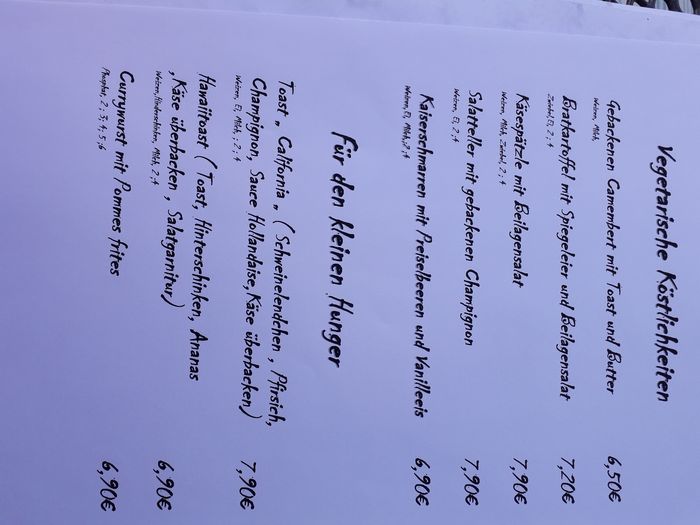 Vegetarische Köstlichkeiten
Gebackenen Camembert mit Toast und Butter 6,50€
Weizen, Milch,
Bratkartoffel mit Spiegeleier und Beilagensalat 7,20€
Zwiebel, Ei, 2 ; 4
Käsespätzle mit Beilagensalat 7,90€
Weizen, Milch, Zwiebel, 2 ; 4
Salatteller mit gebackenen Champignon 7,90€
Weizen, Ei, 2 ; 4
Kaiserschmarren mit Preiselbeeren und Vanilleeis 6,90€
Weizen, Ei, Milch, 2 ; 4
Für den kleinen Hunger
Toast „ California „ ( Schweinelendchen , Pfirsich,
Champignon, Sauce Hollandaise, Käse überbacken) 7,90€
Weizen, Ei, Milch, ; 2 ; 4
Hawaiitoast ( Toast, Hinterschinken, Ananas
, Käse überbacken , Salatgarnitur) 6,90€
Weizen, Hinterschinken, Milch, 2 ; 4
Currywurst mit Pommes frites 6,90€
Phosphat, 2 ; 3; 4; 5 ;6